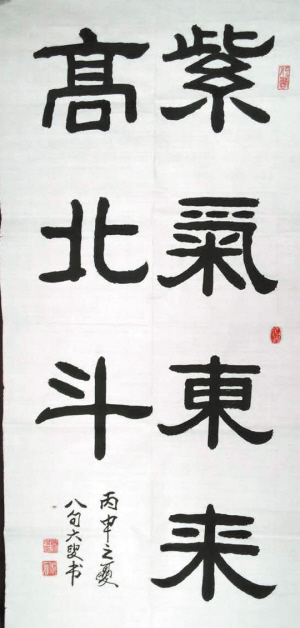 紫氣東来
髙北斗
丙申之夏
八旬六叟书